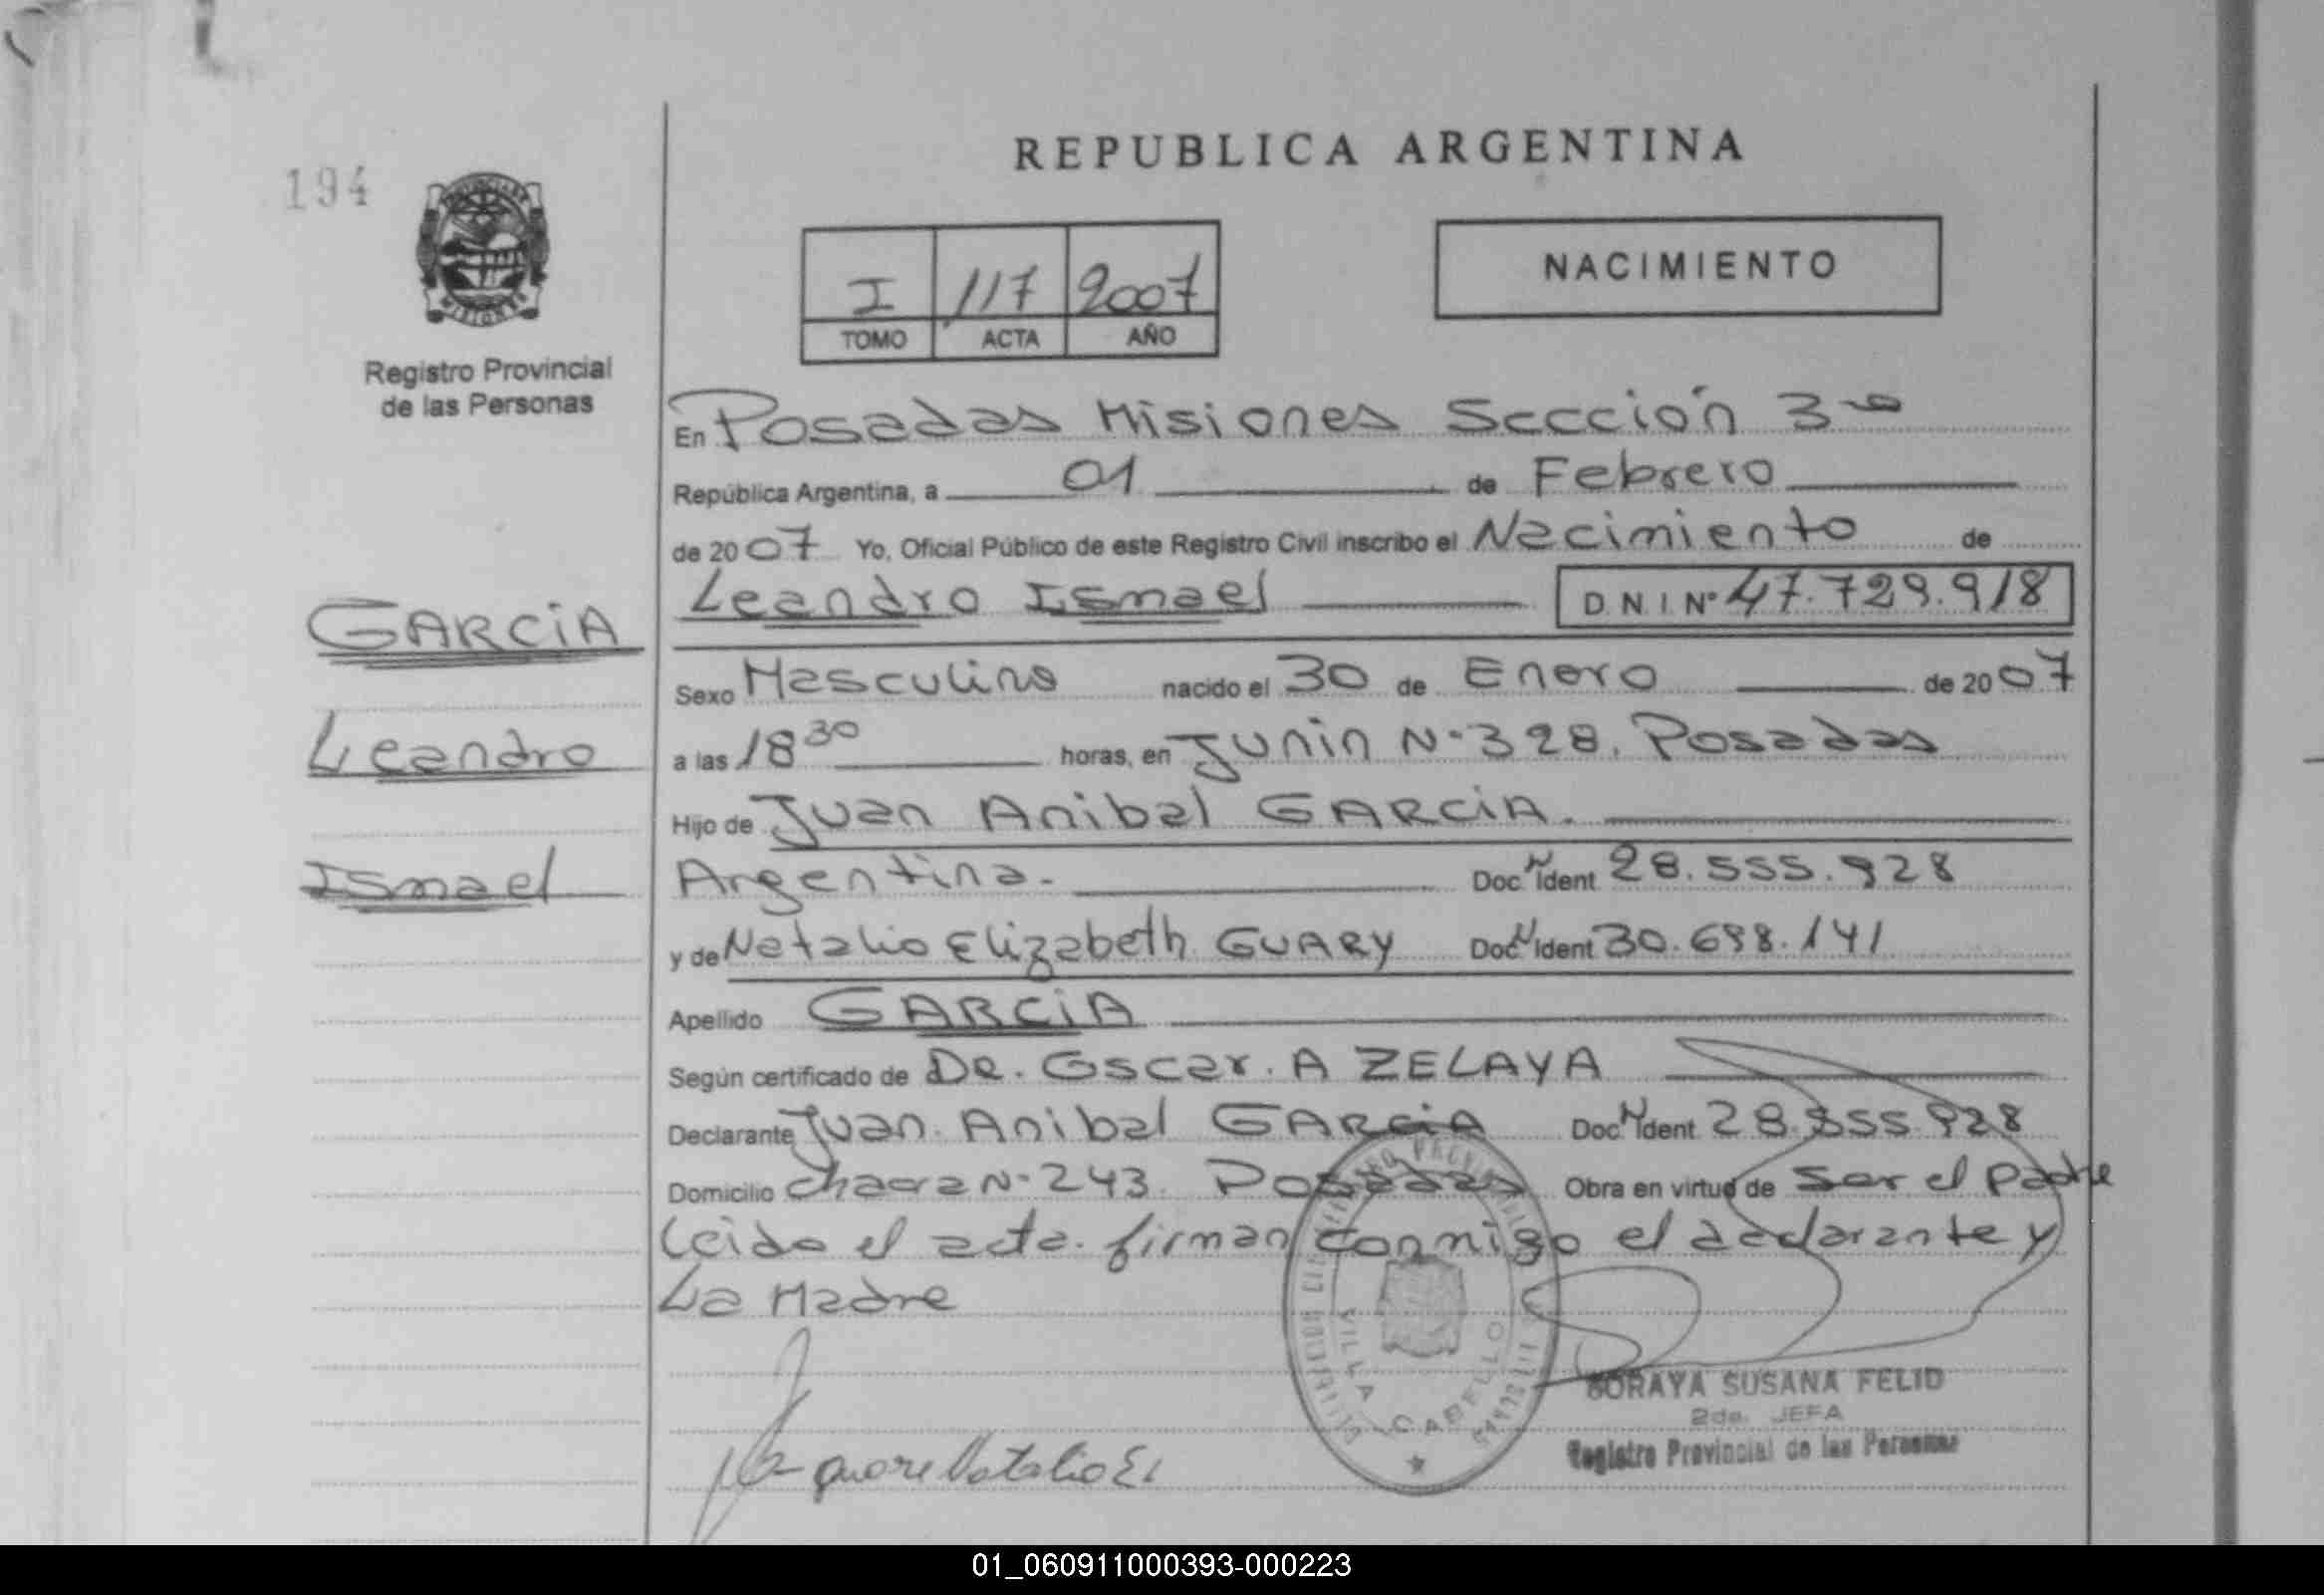 194
REPUBLICA ARGENTINA
I 117 2007
TOMO ACTA AÑO
NACIMIENTO
Registro Provincial
de las Personas
En Posadas Misiones Sección 3ra
República Argentina, a 01 de Febrero
de 2007 Yo, Oficial Público de este Registro Civil inscribo el Nacimiento de
Leandro Ismael D.N.I. Nº 47.729.918
GARCiA
Leandro
Ismael
Sexo Masculino nacido el 30 de Enero de 2007
a las 18 30 horas, en Junin Nº 328. Posadas
Hijo de Juan Anibal GARCiA.
Argentina. Doc N Ident 28.555.928
y de Natalia Elizabeth GUARY Doc N Ident 30.698.141
Apellido GARCiA
Según certificado de DR. Oscar. A ZELAYA
Declarante Juan. Anibal GARCiA Doc N Ident 28.555.928
Domicilio chacra Nº 243. Posadas Obra en virtud de ser el padre
Leida el acta. firman conmigo el declarante y
La Madre
VILLA CABELLO
SORAYA SUSANA FELID
2da. JEFA
Registro Provincial de las Personas
01_060911000393-000223